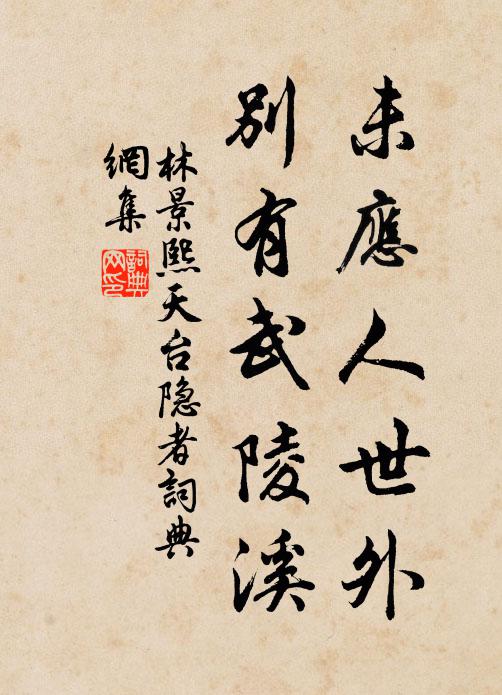 未應人世外
別有武陵溪
林景熙天台隐者詞典
網集
詞典
网印